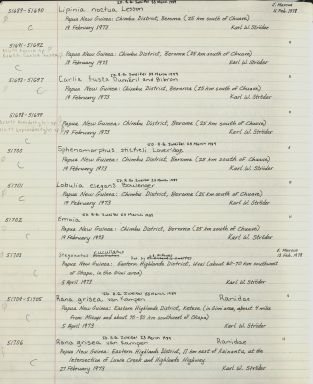 I.D. R.G. Zweifel 23 March 1979
51689-51690 Lipinia noctua Lesson
Papua New Guinea: Chimbu District, Beroma (25 km south of Chuave)
C 19 February 1973 Karl W. Ströder
51691-51692
Papua New Guinea: Chimbu District, Beroma (25 km south of Chuave)
C 19 February 1973 Karl W. Ströder
I.D. R.G. Zweifel 23 March 1979
51693-51697 Carlia fusca Duméril and Bibron
Papua New Guinea: Chimbu District, Beroma (25 km south of Chuave)
19 February 1973 Karl W. Ströder
51698-51699
Papua New Guinea: Chimbu District, Beroma (25 km south of Chuave)
19 February 1973 Karl W. Ströder
I.D. R.G. Zweifel 23 March 1979
51700 Sphenomorphus stickeli Loveridge
Papua New Guinea: Chimbu District, Beroma (25 km south of Chuave)
C 19 February 1973 Karl W. Ströder
I.D. R.G. Zweifel 23 March 1979
51701 Lobulia elegans Boulenger
Papua New Guinea: Chimbu District, Beroma (25 km south of Chuave)
C 19 February 1973 Karl W. Ströder
I.D. R.G. Zweifel 23 March 1979
51702 Emoia
Papua New Guinea: Chimbu District, Beroma (25 km south of Chuave)
C 19 February 1973 Karl W. Ströder
51703 Stegonotus
Papua New Guinea: Eastern Highlands District, (about 60-70 km southwest
C of Okapa, in the Gimi area)
5 April 1973 Karl W. Ströder
I.D. R.G. Zweifel 23 March 1979
51704-51705 Rana grisea van Kampen Ranidae
Papua New Guinea: Eastern Highlands District, (in Gimi area, about 4 miles
C from
5 April 1973 Karl W. Ströder
I.D. R.G. Zweifel 23 March 1979
51706 Rana grisea van Kampen Ranidae
Papua New Guinea: Eastern Highlands District, 11 km east of Kainantu, at the
C Intersection of Lowa Creek and Highlands Highway
21 February 1973 Karl W. Ströder